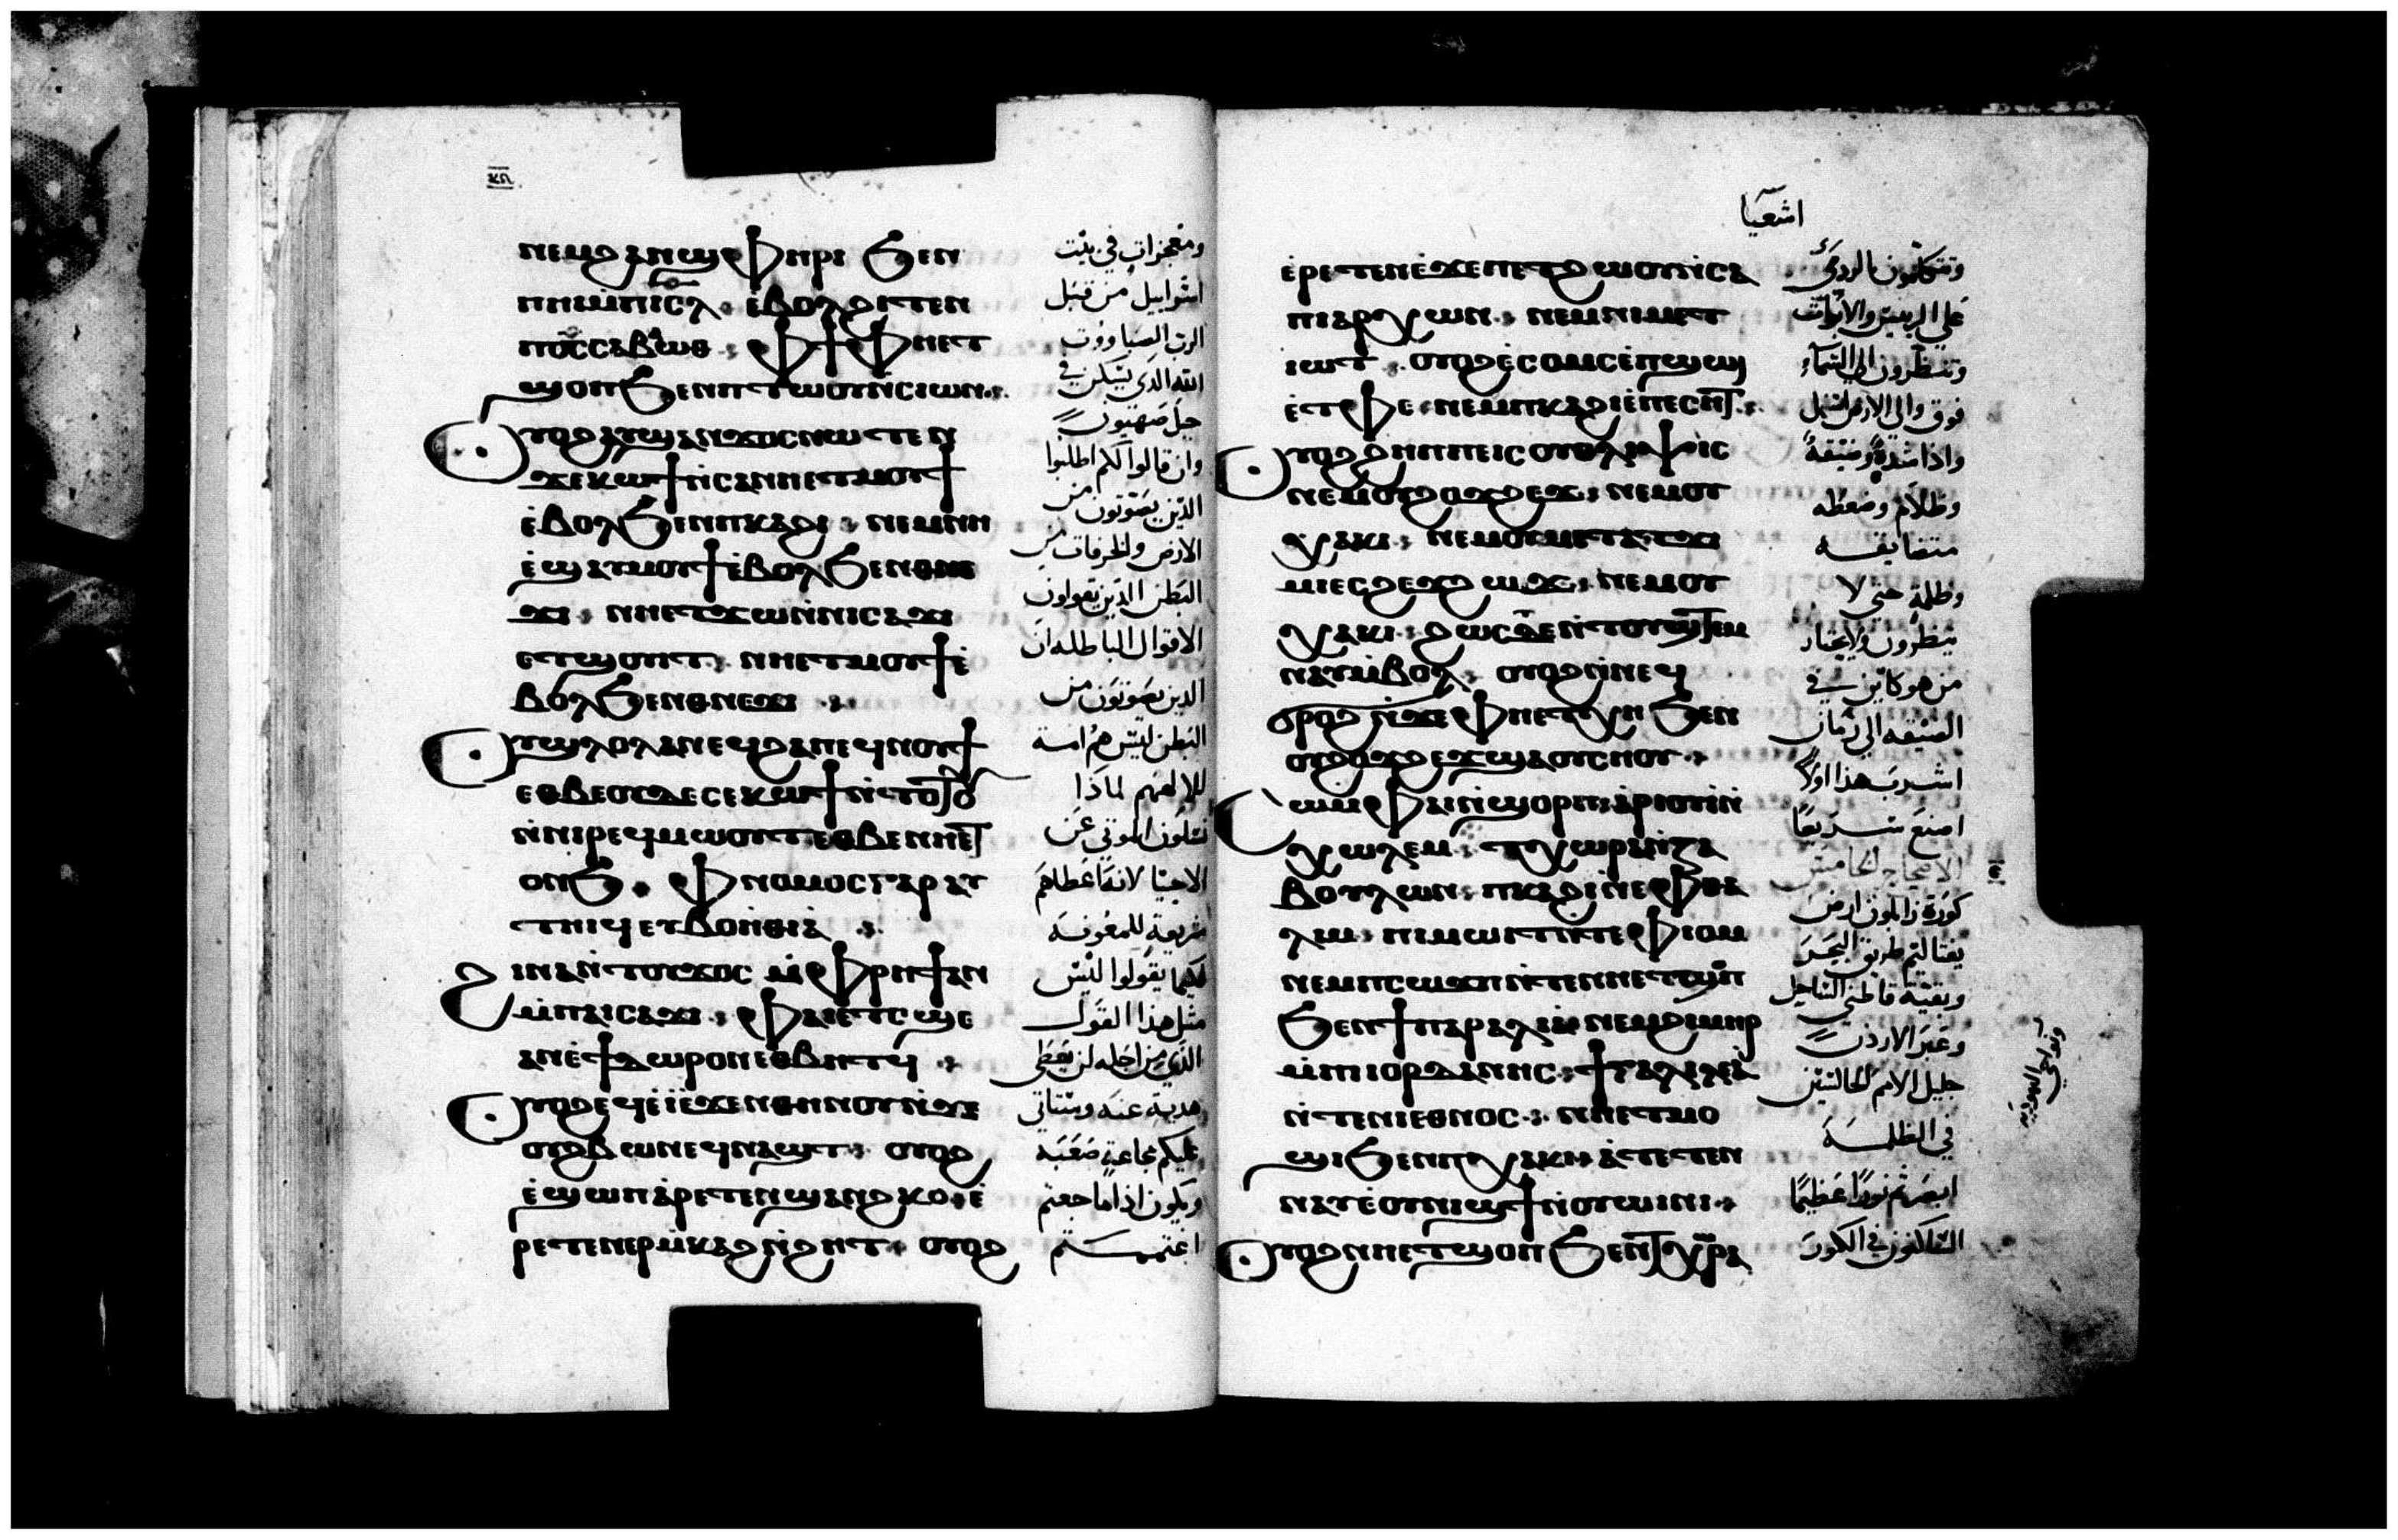 ⲛⲉⲙϩⲁⲛϣⲫⲏⲣⲓ ϧⲉⲛ
ⲡⲏⲓⲙ̀ⲡⲓⲥⲗ ⲉ̀ⲃⲟⲗϩⲓⲧⲉⲛ
ⲡⲟ̅ⲥ̅ⲥⲁⲃⲁⲱⲑ ⲫϯⲫⲏⲉⲧ
ϣⲟⲡϧⲉⲛⲡⲧⲱⲟⲩⲛ̀ⲥⲓⲱⲛ
ⲟⲩⲟϩⲁⲩϣⲁⲛϫⲟⲥⲛⲱⲧⲉⲛ
ϫⲉⲕⲱϯⲛ̀ⲥⲁⲛⲏⲉⲧⲙⲟⲩϯ
ⲉ̀ⲃⲟⲗϧⲉⲛⲡⲕⲁϩⲓ ⲛⲉⲙⲛⲏ
ⲉ̀ϣⲁⲩⲙⲟⲩϯⲉ̀ⲃⲟⲗϧⲉⲛⲑⲛⲉ
ϫⲓ ⲛⲏⲉⲧϫⲱⲛ̀ⲛⲓⲥⲁϫⲓ
ⲉⲧϣⲟⲩⲓⲧ ⲛⲏⲉⲧⲙⲟⲩϯⲉ̀
ⲃⲟⲗϧⲉⲛⲑⲛⲉϫⲓ
ⲟⲩϣⲗⲟⲗⲁⲛⲉϥϩⲁⲛⲉϥⲛⲟⲩϯ
ⲉⲑⲃⲉⲟⲩϫⲉⲥⲉⲕⲱϯⲛ̀ⲧⲟⲧⲟⲩ
ⲛ̀ⲛⲓⲣⲉϥⲙⲱⲟⲩⲧⲉⲑⲃⲉⲛⲏⲉⲧ
ⲟⲛϧ ⲫⲛⲟⲙⲟⲥⲅⲁⲣ ⲁⲩ
ⲧⲏⲓϥⲉⲩⲃⲟⲏ̀ⲑⲓⲁ
ϩⲓⲛⲁⲛ̀ⲧⲟⲩϫⲟⲥ ⲙ̀ⲫⲣⲏϯⲁⲛ
ⲙ̀ⲡⲁⲓⲥⲁϫⲓ ⲫⲁⲓⲉ̀ⲧⲥϣⲉ
ⲁⲛⲉ̀ϯⲇⲱⲣⲟⲛⲉⲑⲃⲏⲧϥ
ⲟⲩⲟϩⲉϥⲉ̀ⲓ̀ⲉ̀ϫⲉⲛⲑⲏⲛⲟⲩⲛ̀ϫⲉ
ⲟⲩϩⲃⲱⲛⲉϥⲛⲁϣⲧ ⲟⲩⲟϩ
ⲉ̀ϣⲱⲡⲁ̀ⲣⲉⲧⲉⲛϣⲁⲛϩⲕⲟ ⲉ̀
ⲣⲉⲧⲉⲛⲉⲣⲙ̀ⲕⲁϩⲛ̀ϩⲏⲧ ⲟⲩⲟϩ
ومعجزات في بيت
اسراييل من قبل
الرب الصباووت
الله الذي يسكن في
جبل صهيون
وان قالوا لكم اطلبوا
الذين يصوتون من
الارض والخرافات من
البطن الذين يقولون
الاقوال الباطله ان
الذين يصوتون من
البطن ليس هم امة
للإلههم لماذا
تسلون الموتي عن
الاحيا لانه اعطاهم
شريعة للمعونة
لكيما يقولوا ليس
مثل هذا القول
الذي من اجله لن يعطي
هدية عنه وستاتي
عليكم مجاعة صعبة
ويكون اذا ما جعتم
اغتممتم
اشعيا
ⲉ̀ⲣⲉⲧⲉⲛⲉ̀ϫⲉⲡⲉⲧϩⲱⲟⲩⲛ̀ⲥⲁ
ⲡⲓⲁⲣⲭⲱⲛ ⲛⲉⲙⲛⲓⲙⲉⲧ
ⲓⲱⲧ ⲟⲩⲟϩⲉ̀ⲥⲟⲙⲥⲉ̀ⲡϣⲱⲓ
ⲉ̀ⲧⲫⲉ ⲛⲉⲙⲡⲕⲁϩⲓⲉ̀ⲡⲉⲥⲏⲧ
ⲟⲩⲟϩϩⲏⲡⲡⲉⲓⲥⲟⲩⲑⲗⲓⲯⲓⲥ
ⲛⲉⲙⲟⲩϩⲟϫϩⲉϫ ⲛⲉⲙⲟⲩ
ⲭⲁⲕⲓ ⲛⲉⲙⲟⲩⲙⲉⲧⲁⲧϫⲓ
ⲙⲓⲉⲥϩⲉϫϩⲱϫ ⲛⲉⲙⲟⲩ
ⲭⲁⲕⲓ ϩⲱⲥⲇⲉⲛ̀ⲧⲟⲩϣⲧⲉⲙ
ⲛⲁⲩⲙ̀ⲃⲟⲗ ⲟⲩⲟϩⲛ̀ⲛⲉϥ
ϩⲣⲟϣⲛ̀ϫⲉⲫⲏⲉⲧⲭⲏ ϧⲉⲛ
ⲟⲩϩⲟϫϩⲉϫϣⲁⲟⲩⲥⲏⲟⲩ
ⲥⲱⲫⲁⲓⲛ̀ϣⲟⲣⲡ ⲁ̀ⲣⲓⲟⲩⲓ̀ⲛ̀
ⲭⲱⲗⲉⲙ ⲧⲭⲱⲣⲁⲛ̀ⲍⲁ
ⲃⲟⲩⲗⲱⲛ ⲡⲕⲁϩⲓⲛ̀ⲛⲉⲫⲑⲁ
ⲗⲓⲙ ⲡⲓⲙⲱⲓⲧⲛ̀ⲧⲉⲫⲓⲟⲙ
ⲛⲉⲙⲡⲥⲱϫⲡⲛ̀ⲧⲉⲛⲏⲉⲧϣⲟⲡ
ϧⲉⲛϯⲡⲁⲣⲁⲗⲓⲁ ⲛⲉⲙϩⲓⲙⲏⲣ
ⲙ̀ⲡⲓⲟⲣⲇⲁⲛⲏⲥ ϯⲅⲁⲗⲓⲗⲉⲁ̀
ⲛ̀ⲧⲉⲛⲓⲉⲑⲛⲟⲥ ⲛⲏⲉⲧⲙⲟ
ϣⲓϧⲉⲛⲡⲭⲁⲕⲓ ⲁ̀ⲧⲉⲧⲉⲛ
ⲛⲁⲩⲉ̀ⲟⲩⲛⲓϣϯⲛ̀ⲟⲩⲱⲓⲛⲓ
ⲟⲩⲟϩⲛⲏⲉⲧϣⲟⲡϧⲉⲛϯⲭⲱⲣⲁ
علي الرييس والابهات
وتنظرون الي السماء
فوق والي الارض اسفل
واذا شدة وضيقة
وظلام وضغطه
متضايقه
وظلمة حتي لا
ينظرون ولا
من هو كاين في
الضيقه الي زمان
اشرب هذا اولا
اصنع سريعا
الاصحاح الخامس
كورة زابلون ارض
يفتاليم طريق البحر
وبقية قاطني الساحل
وعبر الاردن
جليل الامم
في الظلمة
ابصرتم نورا عظيما
الساكنون في الكور